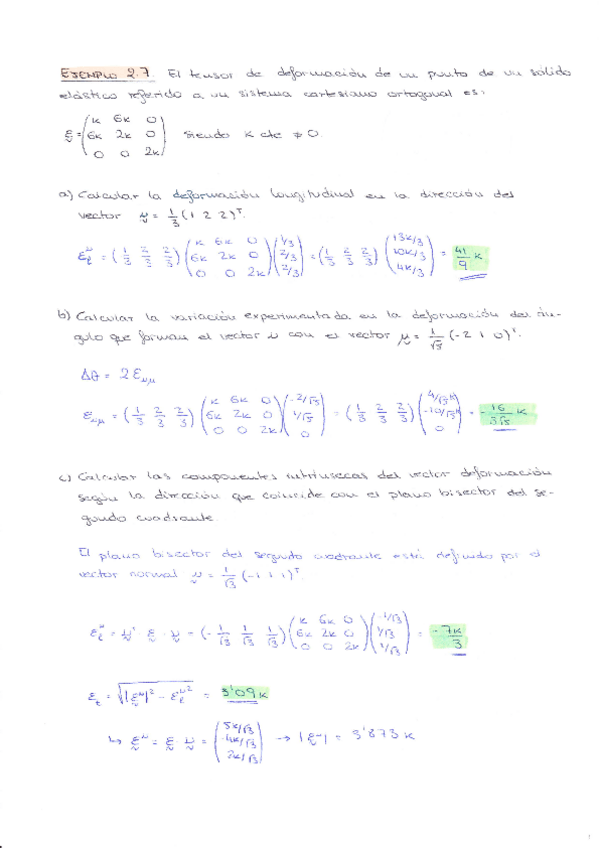 EJEMPLO 2.7. El tensor de deformación de un punto de un sólido
elástico referido a un sistema cartesiano ortogonal es:
ε = (k 6k 0
6k 2k 0 siendo k cte ≠ 0.
0 0 2k)
a) Calcular la deformación longitudinal en la dirección del
vector ν = 1/3 (1 2 2)ᵀ.
ε_ℓ^ν = (1/3 2/3 2/3) (k 6k 0; 6k 2k 0; 0 0 2k) (1/3; 2/3; 2/3) = (1/3 2/3 2/3) (13k/3; 10k/3; 4k/3) = 41/9 k
b) Calcular la variación experimentada en la deformación del án-
gulo que forman el vector ν con el vector μ = 1/√5 (-2 1 0)ᵀ.
Δθ = 2 ε_ν,μ
ε_ν,μ = (1/3 2/3 2/3) (k 6k 0; 6k 2k 0; 0 0 2k) (-2/√5; 1/√5; 0) = (1/3 2/3 2/3) (4/√5 k; -10/√5 k; 0) = -16/3√5 k
c) Calcular las componentes intrínsecas del vector deformación
según la dirección que coincide con el plano bisector del se-
gundo cuadrante.
El plano bisector del segundo cuadrante está definido por el
vector normal ν = 1/√3 (-1 1 1)ᵀ.
ε_ℓ^ν = νᵗ · ε · ν = (-1/√3 1/√3 1/√3) (k 6k 0; 6k 2k 0; 0 0 2k) (-1/√3; 1/√3; 1/√3) = -7k/3
ε_t = √(|ε^ν|² - ε_ℓ^ν²) = 3'09 k
↳ ε^ν = ε ν = (5k/√3; -4k/√3; 2k/√3) → |ε^ν| = 3'873 k